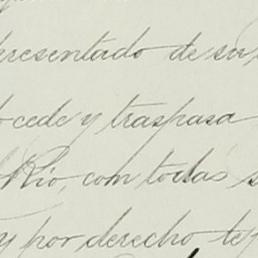 presentado de su
cede y traspasa
Rio, con todas
y por derecho te